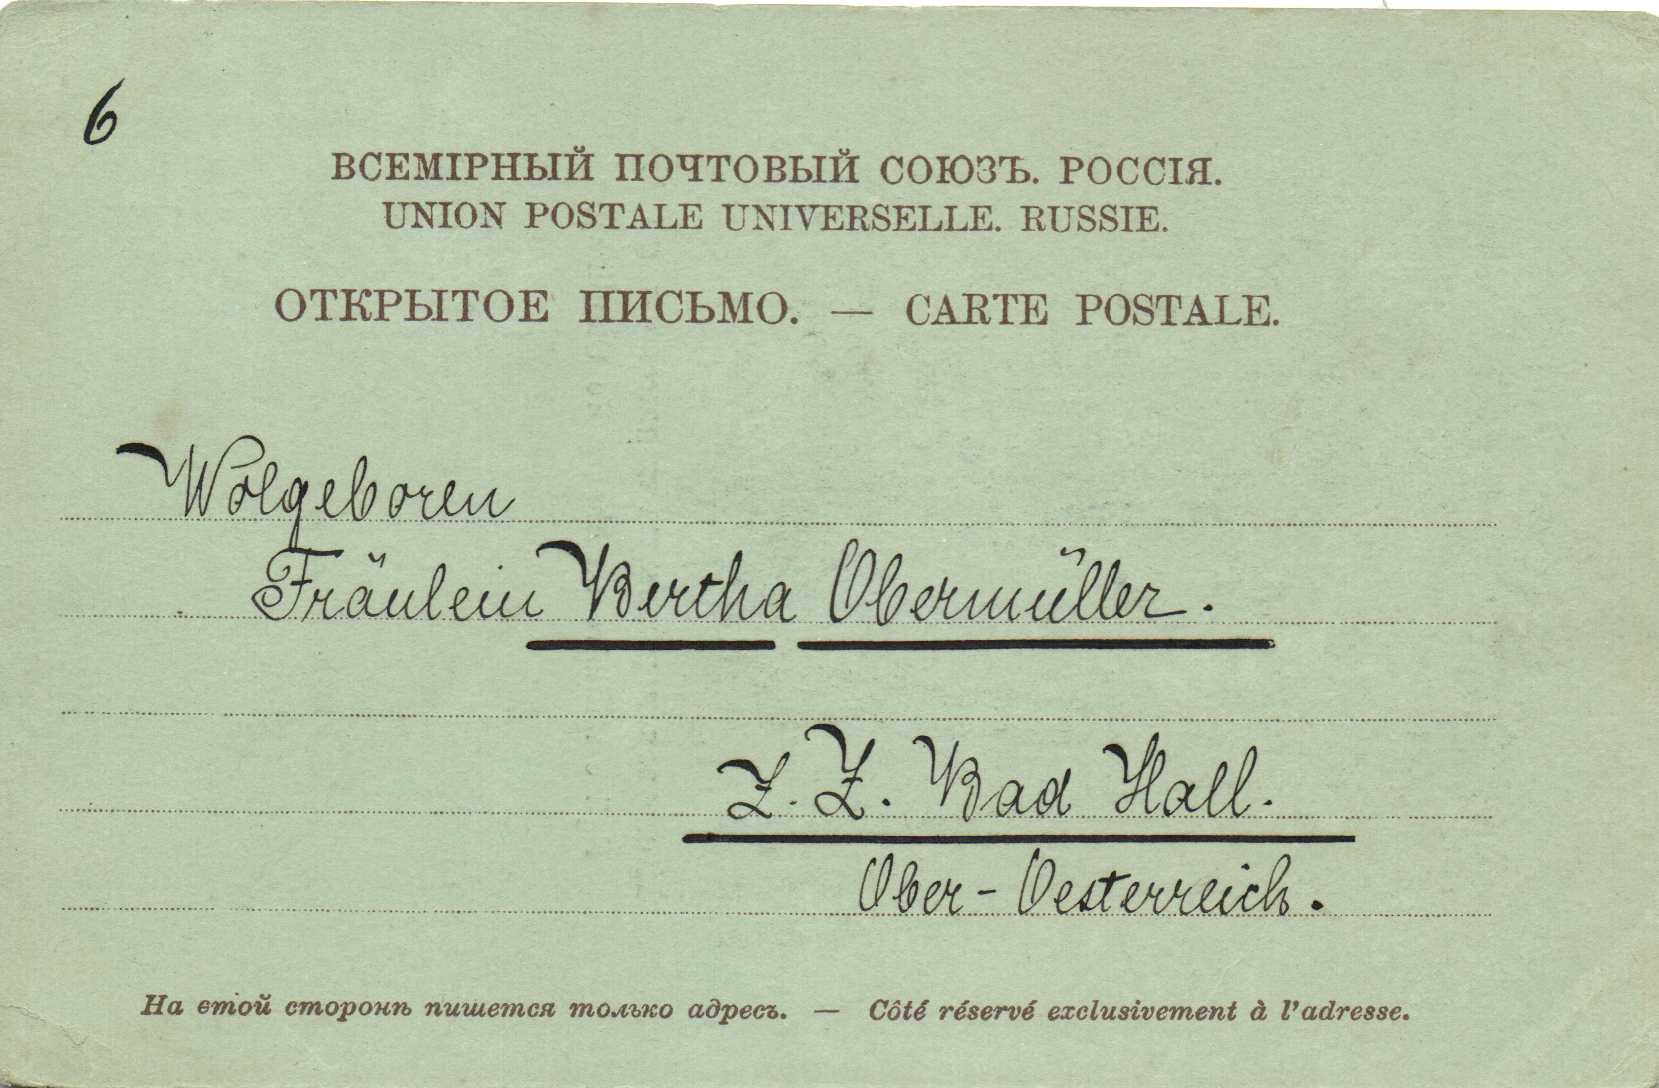 6
ВСЕМІРНЫЙ ПОЧТОВЫЙ СОЮЗЪ. РОССІЯ.
UNION POSTALE UNIVERSELLE. RUSSIE.
ОТКРЫТОЕ ПИСЬМО. — CARTE POSTALE.
Wolgeboren
Fräulein Bertha Obermüller.
Z. Z. Bad Hall.
Ober-Oesterreich.
На етой сторонѣ пишется только адресъ. — Côté réservé exclusivement à l'adresse.